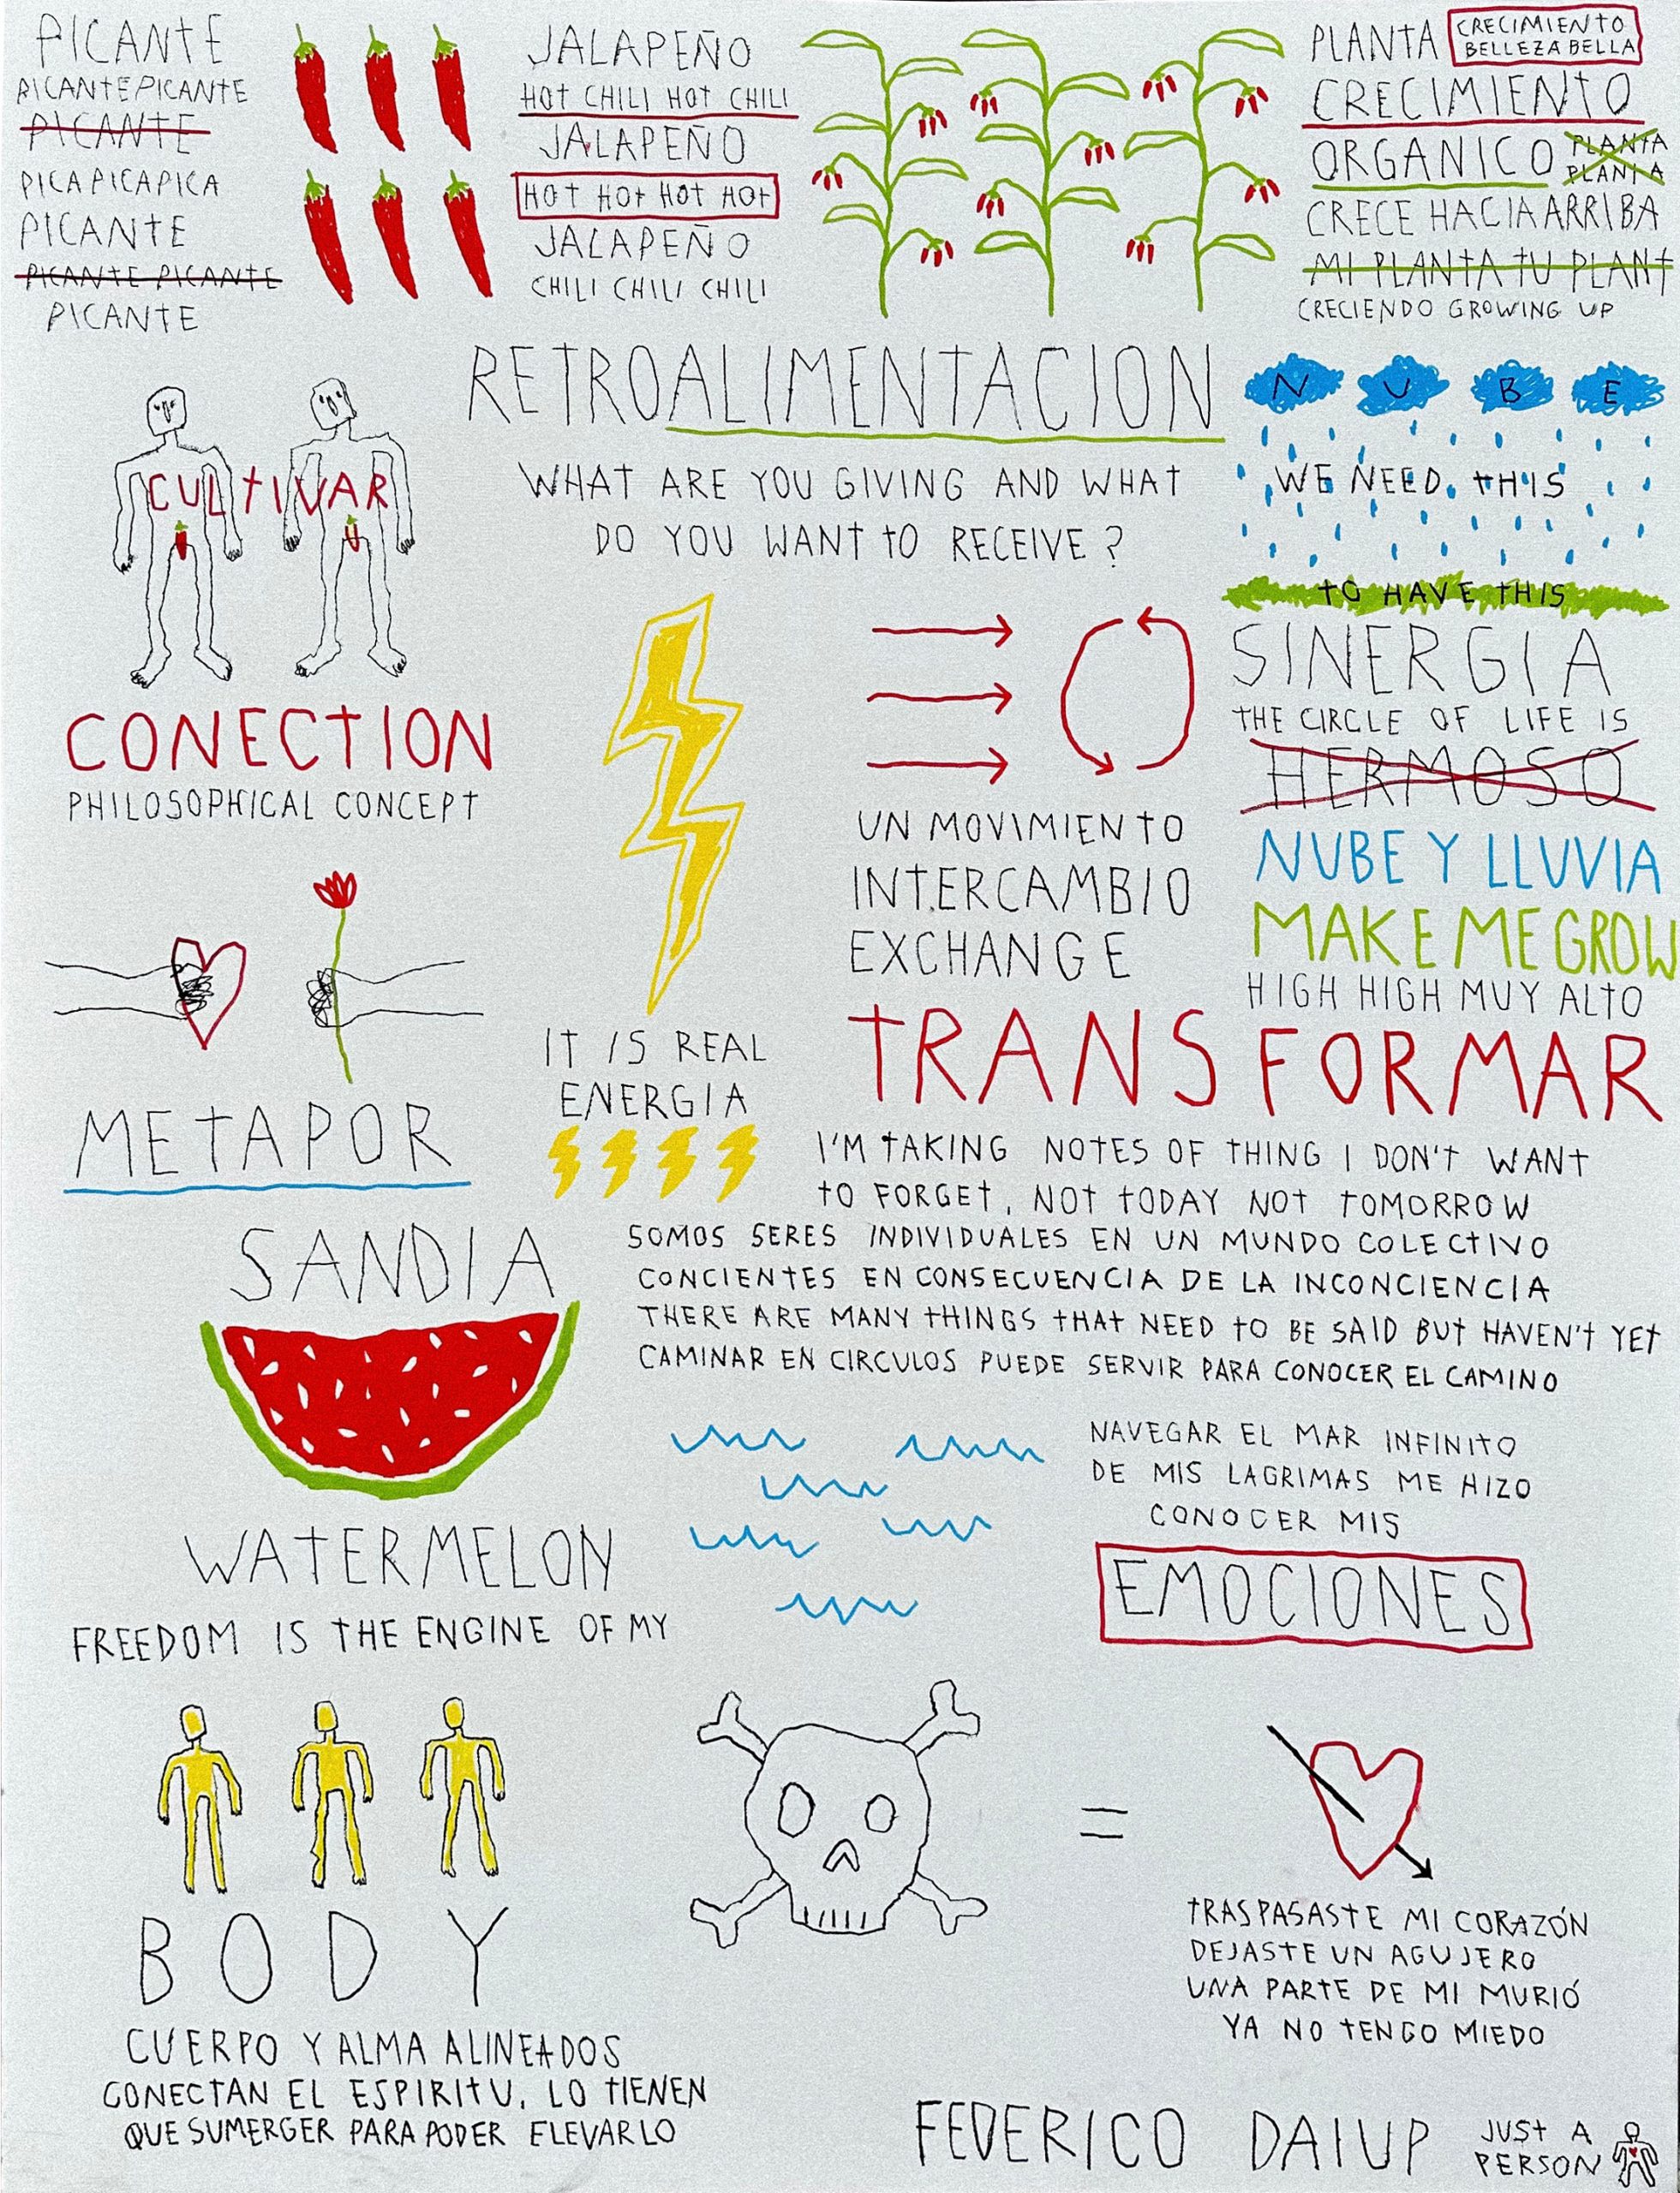 PICANTE
PICANTE PICANTE
PICANTE
PICA PICA PICA
PICANTE
PICANTE PICANTE
PICANTE
JALAPEÑO
HOT CHILI HOT CHILI
JALAPEÑO
HOT HOT HOT HOT
JALAPEÑO
CHILI CHILI CHILI
PLANTA
CRECIMIENTO
BELLEZA BELLA
CRECIMIENTO
ORGANICO
PLANTA
PLANTA
CRECE HACIA ARRIBA
MI PLANTA TU PLANT
CRECIENDO GROWING UP
RETROALIMENTACION
WHAT ARE YOU GIVING AND WHAT
DO YOU WANT TO RECEIVE ?
NUBE
WE NEED THIS
TO HAVE THIS
CULTIVAR
CONECTION
PHILOSOPHICAL CONCEPT
SINERGIA
THE CIRCLE OF LIFE IS
HERMOSO
NUBE Y LLUVIA
MAKE ME GROW
HIGH HIGH MUY ALTO
UN MOVIMIENTO
INTERCAMBIO
EXCHANGE
TRANSFORMAR
IT IS REAL
ENERGIA
METAPOR
I'M TAKING NOTES OF THING I DON'T WANT
TO FORGET, NOT TODAY NOT TOMORROW
SOMOS SERES INDIVIDUALES EN UN MUNDO COLECTIVO
CONCIENTES EN CONSECUENCIA DE LA INCONCIENCIA
THERE ARE MANY THINGS THAT NEED TO BE SAID BUT HAVEN'T YET
CAMINAR EN CIRCULOS PUEDE SERVIR PARA CONOCER EL CAMINO
SANDIA
WATERMELON
FREEDOM IS THE ENGINE OF MY
NAVEGAR EL MAR INFINITO
DE MIS LAGRIMAS ME HIZO
CONOCER MIS
EMOCIONES
BODY
CUERPO Y ALMA ALINEADOS
CONECTAN EL ESPIRITU, LO TIENEN
QUE SUMERGER PARA PODER ELEVARLO
=
TRASPASASTE MI CORAZÓN
DEJASTE UN AGUJERO
UNA PARTE DE MI MURIÓ
YA NO TENGO MIEDO
FEDERICO DAIUP
JUST A
PERSON